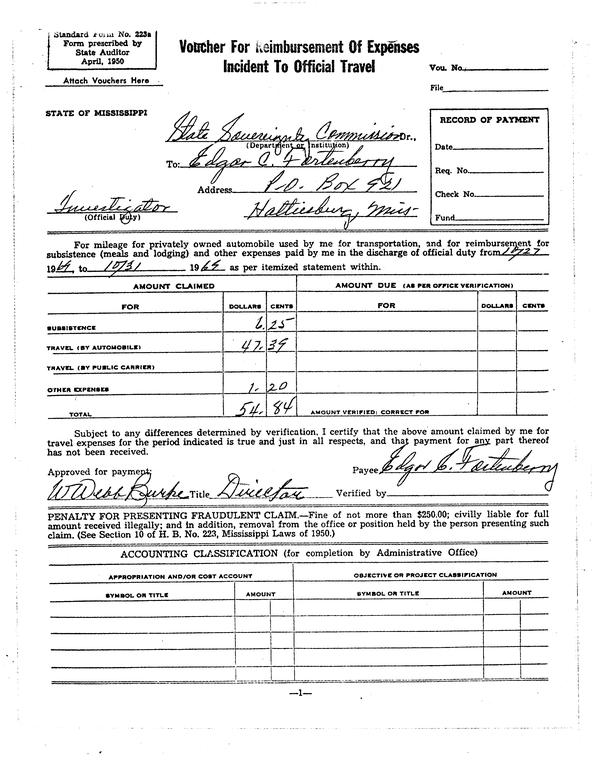 Standard Form No. 223a
Form prescribed by
State Auditor
April, 1950
Attach Vouchers Here
Voucher For Reimbursement Of Expenses
Incident To Official Travel
Vou. No.
File
STATE OF MISSISSIPPI
RECORD OF PAYMENT
Date
Req. No.
Check No.
Fund
State Sovereignty Commission Dr.,
(Department or Institution)
To: Edgar C. Fortenberry
Address P.O. Box 921
Investigator Hattiesburg, Miss
(Official Duty)
For mileage for privately owned automobile used by me for transportation, and for reimbursement for
subsistence (meals and lodging) and other expenses paid by me in the discharge of official duty from 10/27
1964, to 10/31 1964 as per itemized statement within.
AMOUNT CLAIMED AMOUNT DUE (AS PER OFFICE VERIFICATION)
FOR DOLLARS CENTS FOR DOLLARS CENTS
SUBSISTENCE 6.25
TRAVEL (BY AUTOMOBILE) 47.39
TRAVEL (BY PUBLIC CARRIER)
OTHER EXPENSES 1.20
TOTAL 54.84 AMOUNT VERIFIED; CORRECT FOR
Subject to any differences determined by verification, I certify that the above amount claimed by me for
travel expenses for the period indicated is true and just in all respects, and that payment for any part thereof
has not been received.
Approved for payment: Payee Edgar C. Fortenberry
W Webb Burke Title Director Verified by
PENALTY FOR PRESENTING FRAUDULENT CLAIM.—Fine of not more than $250.00; civilly liable for full
amount received illegally; and in addition, removal from the office or position held by the person presenting such
claim. (See Section 10 of H. B. No. 223, Mississippi Laws of 1950.)
ACCOUNTING CLASSIFICATION (for completion by Administrative Office)
APPROPRIATION AND/OR COST ACCOUNT OBJECTIVE OR PROJECT CLASSIFICATION
SYMBOL OR TITLE AMOUNT SYMBOL OR TITLE AMOUNT
—1—